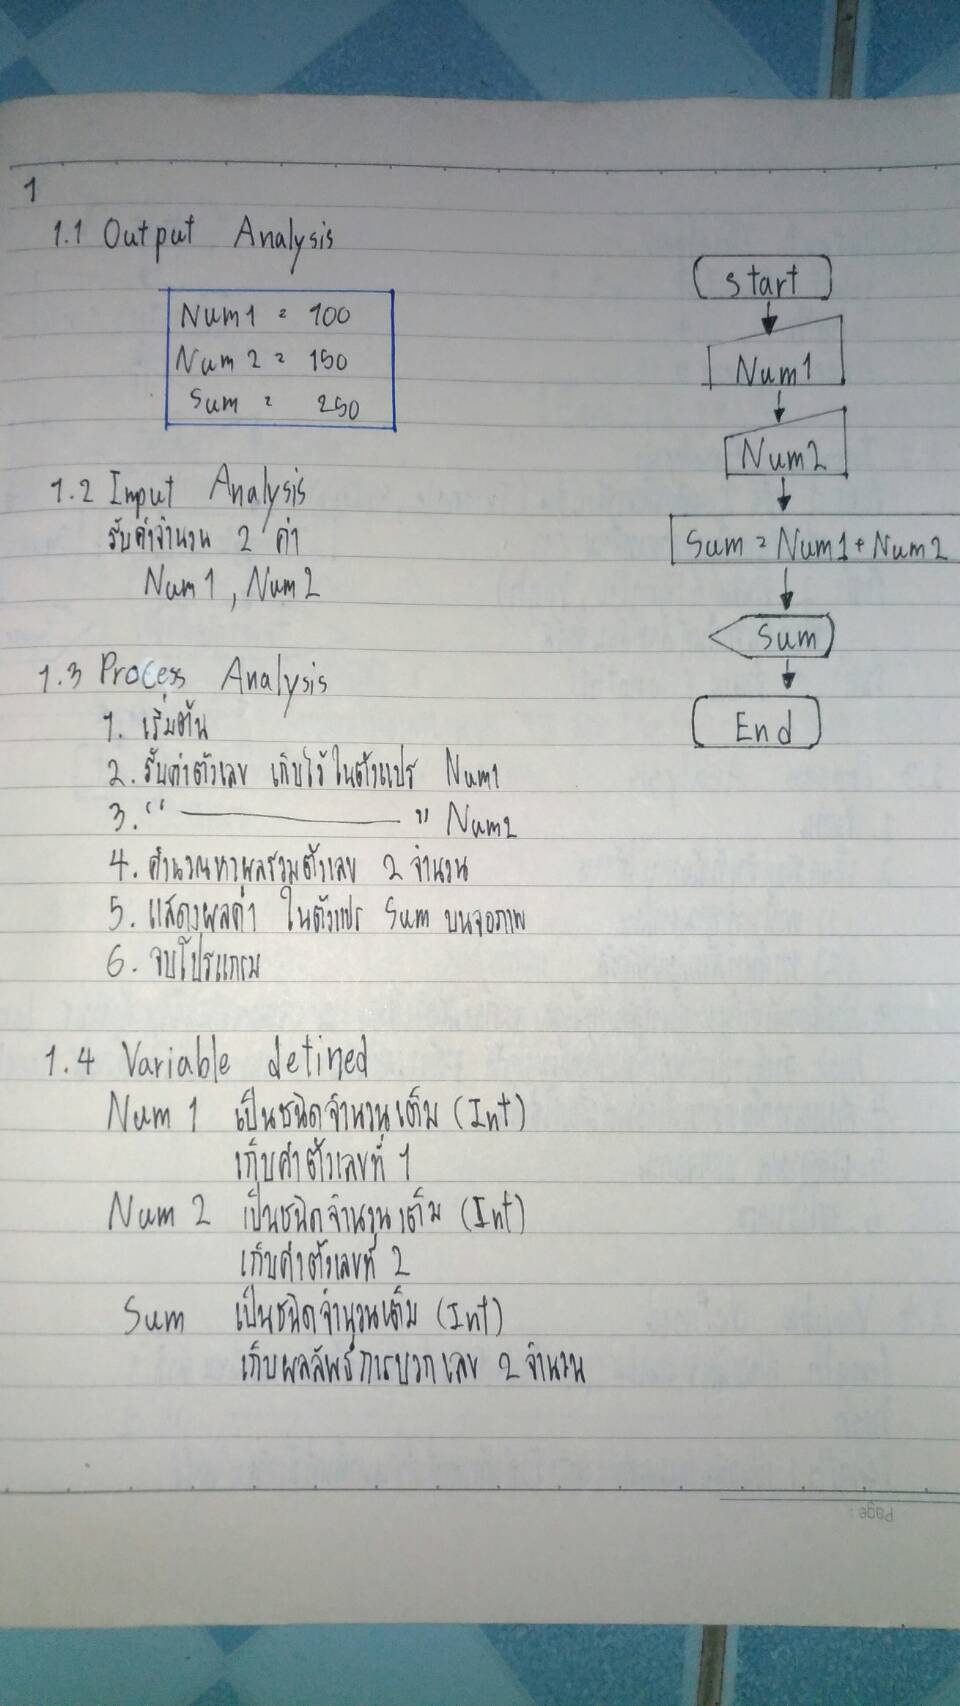 1
1.1 Output Analysis
Num1 = 100
Num2 = 150
Sum = 250
1.2 Input Analysis
รับค่าจำนวน 2 ค่า
Num1, Num2
1.3 Process Analysis
1. เริ่มต้น
2. รับค่าตัวเลข เก็บไว้ในตัวแปร Num1
3. “ ———— ” Num2
4. คำนวณหาผลรวมตัวเลข 2 จำนวน
5. แสดงผลค่า ในตัวแปร Sum บนจอภาพ
6. จบโปรแกรม
1.4 Variable defined
Num 1 เป็นชนิดจำนวนเต็ม (Int)
เก็บค่าตัวเลขที่ 1
Num 2 เป็นชนิดจำนวนเต็ม (Int)
เก็บค่าตัวเลขที่ 2
Sum เป็นชนิดจำนวนเต็ม (Int)
เก็บผลลัพธ์การบวกเลข 2 จำนวน
start
Num1
Num2
Sum = Num1 + Num2
Sum
End
Page :